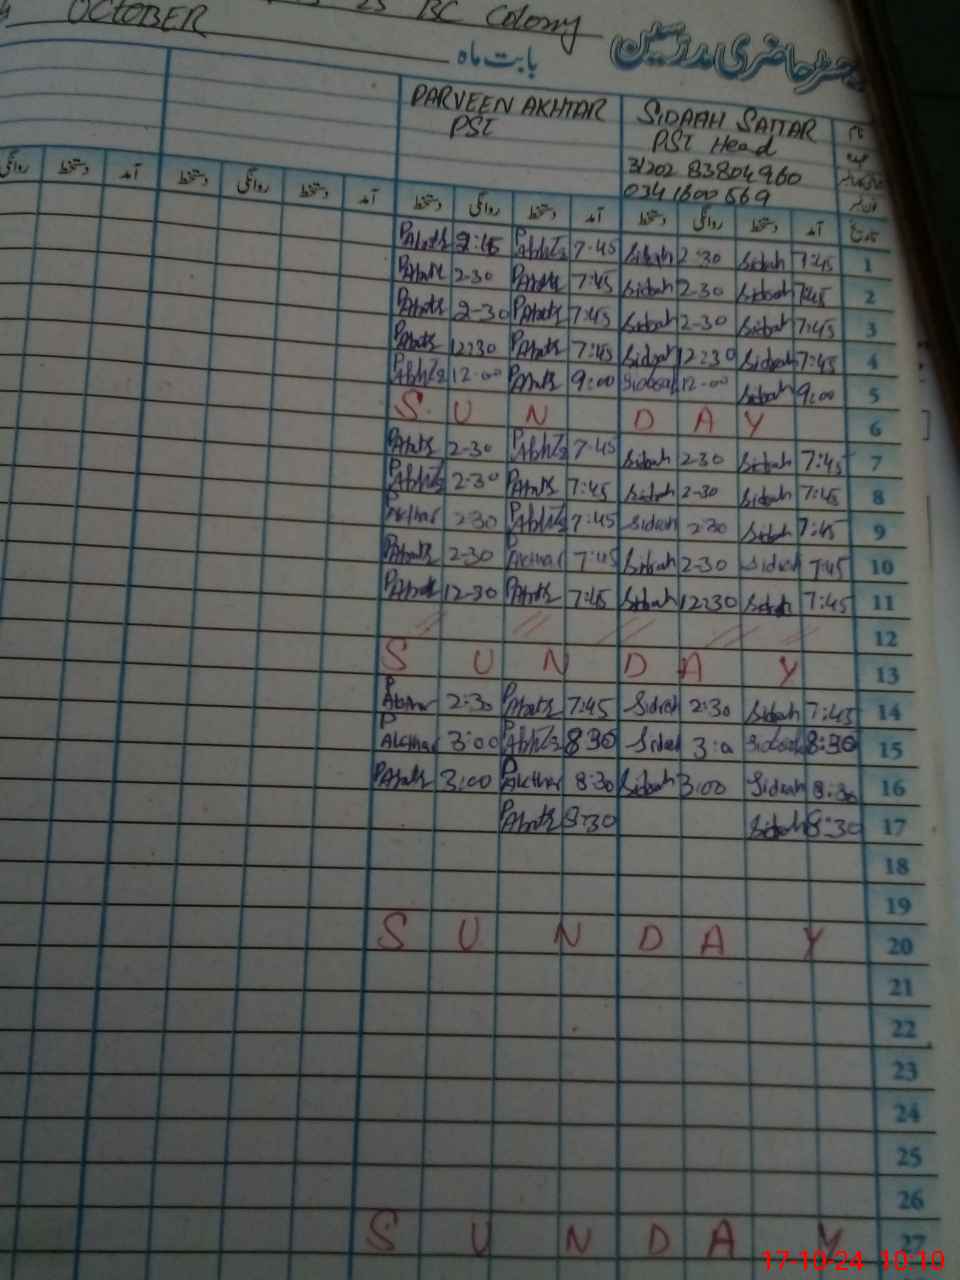 25 BC Colony
OCTOBER
رجسٹر حاضری مدرسین
بابت ماہ
PARVEEN AKHTAR
PST
SIDRAH SATTAR
PST Head
31202 83804960
0341600569
تاریخ آمد دستخط روانگی دستخط آمد دستخط روانگی دستخط آمد دستخط روانگی دستخط آمد دستخط روانگی
2:45 7-45 Sidrah 2:30 Sidrah 7:45 1
2-30 7:45 Sidrah 2-30 Sidrah 7:45 2
2-30 7:45 Sidrah 2-30 Sidrah 7:45 3
12:30 7:45 Sidrah 12:30 Sidrah 7:45 4
12-00 9:00 Sidrah 12-00 Sidrah 9:00 5
S U N D A Y 6
2-30 7-45 Sidrah 2-30 Sidrah 7:45 7
2-30 7:45 Sidrah 2-30 Sidrah 7:45 8
2-30 7:45 Sidrah 2:30 Sidrah 7:45 9
2-30 P Akthar 7:45 Sidrah 2-30 Sidrah 7:45 10
12-30 7:45 Sidrah 12:30 Sidrah 7:45 11
12
S U N D A Y 13
2:30 7:45 Sidrah 2:30 Sidrah 7:45 14
P Akthar 3:00 8:30 Sidrah 3:0 Sidrah 8:30 15
3:00 P Akthar 8:30 Sidrah 3:00 Sidrah 8:30 16
8:30 Sidrah 8:30 17
18
19
S U N D A Y 20
21
22
23
24
25
26
S U N D A Y 27
17-10-24 10:10